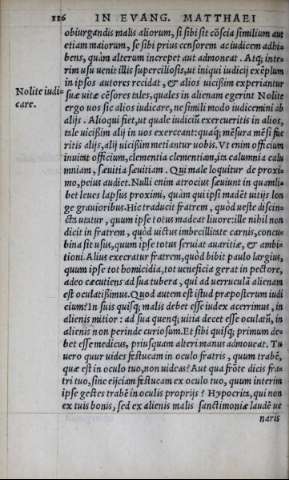 116 IN EVANG. MATTHAEI
obiurgandis malis aliorum, si sibi sit cõscia similium aut
etiam maiorum, se sibi prius censorem ac iudicem adhi-
bens, quàm alterum increpet aut admoneat. Atq; inte-
rim usu uenit illis superciliosis, ut iniqui iudicij exẽplum
in ipsos autores recidat, & alios uicißim experiantur
Nolite iudi-
care.
suæ uitæ cẽsores tales, quales in alienam egerint. Nolite
ergo uos sic alios iudicare, ne simili modo iudicemini ab
alijs. Alioqui fiet, ut quale iudiciũ exercueritis in alios,
tale uicißim alij in uos exerceant: quaq; mẽsura mẽsi fue
ritis alijs, alij uicißim metiantur uobis. Vt enim officium
inuitat officium, clementia clementiam, ita calumnia calu
mniam, sæuitia sæuitiam. Qui male loquitur de proxi-
mo, peius audiet. Nulli enim atrocius sæuiunt in quamli-
bet leues lapsus proximi, quàm qui ipsi madẽt uitijs lon
ge grauioribus. Hic traducit fratrem, quòd ueste discin-
cta utatur, quum ipse totus madeat liuore: ille nihil non
dicit in fratrem, quòd uictus imbecillitate carnis, concu-
bina sit usus, quum ipse totus seruiat auaritiæ, & ambi-
tioni. Alius execratur fratrem, quòd bibit paulo largius,
quum ipse tot homicidia, tot ueneficia gerat in pectore,
adeo cæcutiens ad sua tubera, qui ad uerruculã alienam
est oculatißimus. Quod autem est istud præposterum iudi
cium? In suis quisq; malis debet esse iudex acerrimus, in
alienis mitior: ad sua quenq; uitia decet esse oculatũ, in
alienis non perinde curiosum. Et sibi quisq; primum de-
bet esse medicus, priusquam alteri manus admoueat. Tu
uero quur uides festucam in oculo fratris, quum trabẽ,
quæ est in oculo tuo, non uideas? Aut qua frõte dicis fra-
tri tuo, sine eijciam festucam ex oculo tuo, quum interim
ipse gestes trabẽ in oculis proprijs? Hypocrita, qui non
ex tuis bonis, sed ex alienis malis sanctimoniæ laudẽ ue
naris